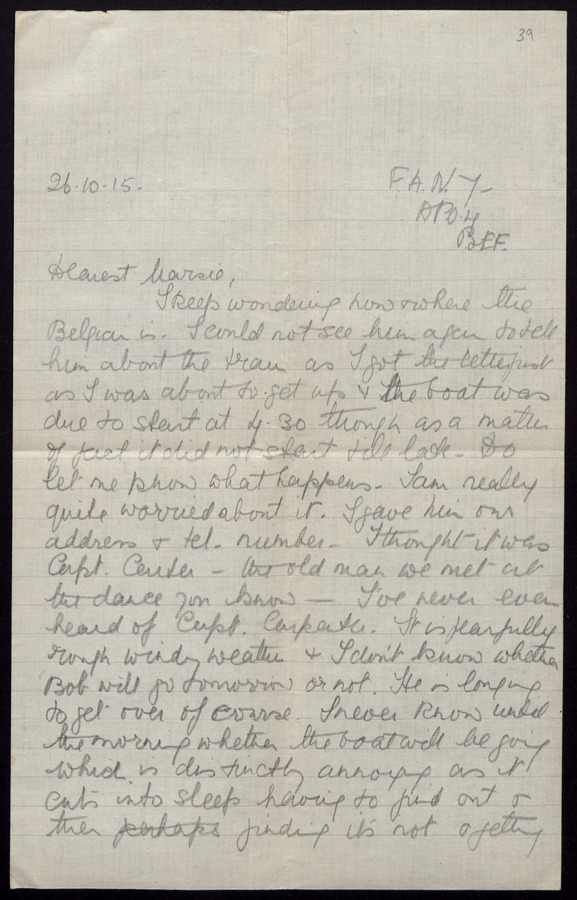 39
26.10.15.
F.A.N.Y.
APO 4
BEF.
Dearest Marsie,
I keep wondering how & where the
Belgian is. I could not see him again to tell
him about the tram as I got the letter just
as I was about to get up & the boat was
due to start at 4.30 though as a matter
of fact it did not start till late. Do
let me know what happens. I am really
quite worried about it. I gave him our
address & tel. number. I thought it was
Capt. Center – the old man we met at
the dance you know — I've never even
heard of Capt. Carpenter. It is fearfully
rough windy weather & I don't know whether
Bob will go tomorrow or not. He is longing
to get over of course. I never know until
the morning whether the boat will be going
which is distinctly annoying as it
cuts into sleep having to find out &
then perhaps finding it's not & getting